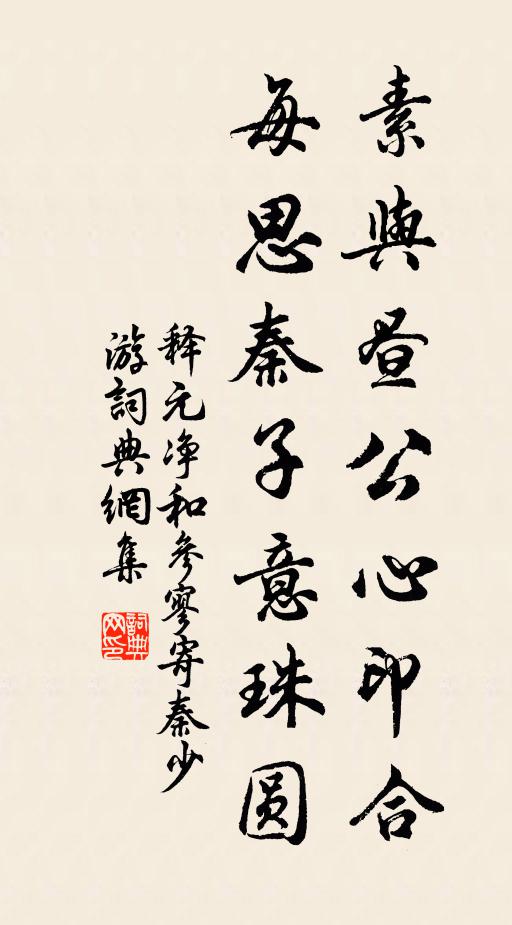 素與昼公心印合
每思秦子意珠圆
释元净和参寥寄秦少
游詞典網集
詞典
网印